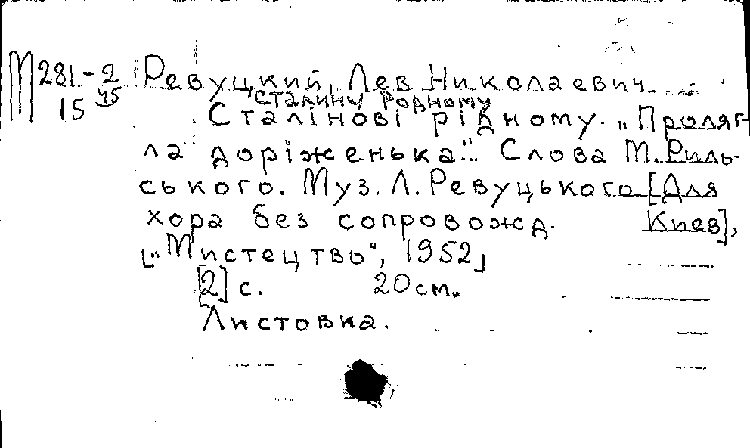 М 281-2 Ревуцкий, Лев Николаевич
15 45 Сталину родному
Сталінові рідному. „Проляг-
ла доріженька". Слова М. Риль-
ського. Муз. Л. Ревуцького [Для
хора без сопровожд. Киев],
[„Мистецтво", 1952]
[2] с. 20 см.
Листовка.